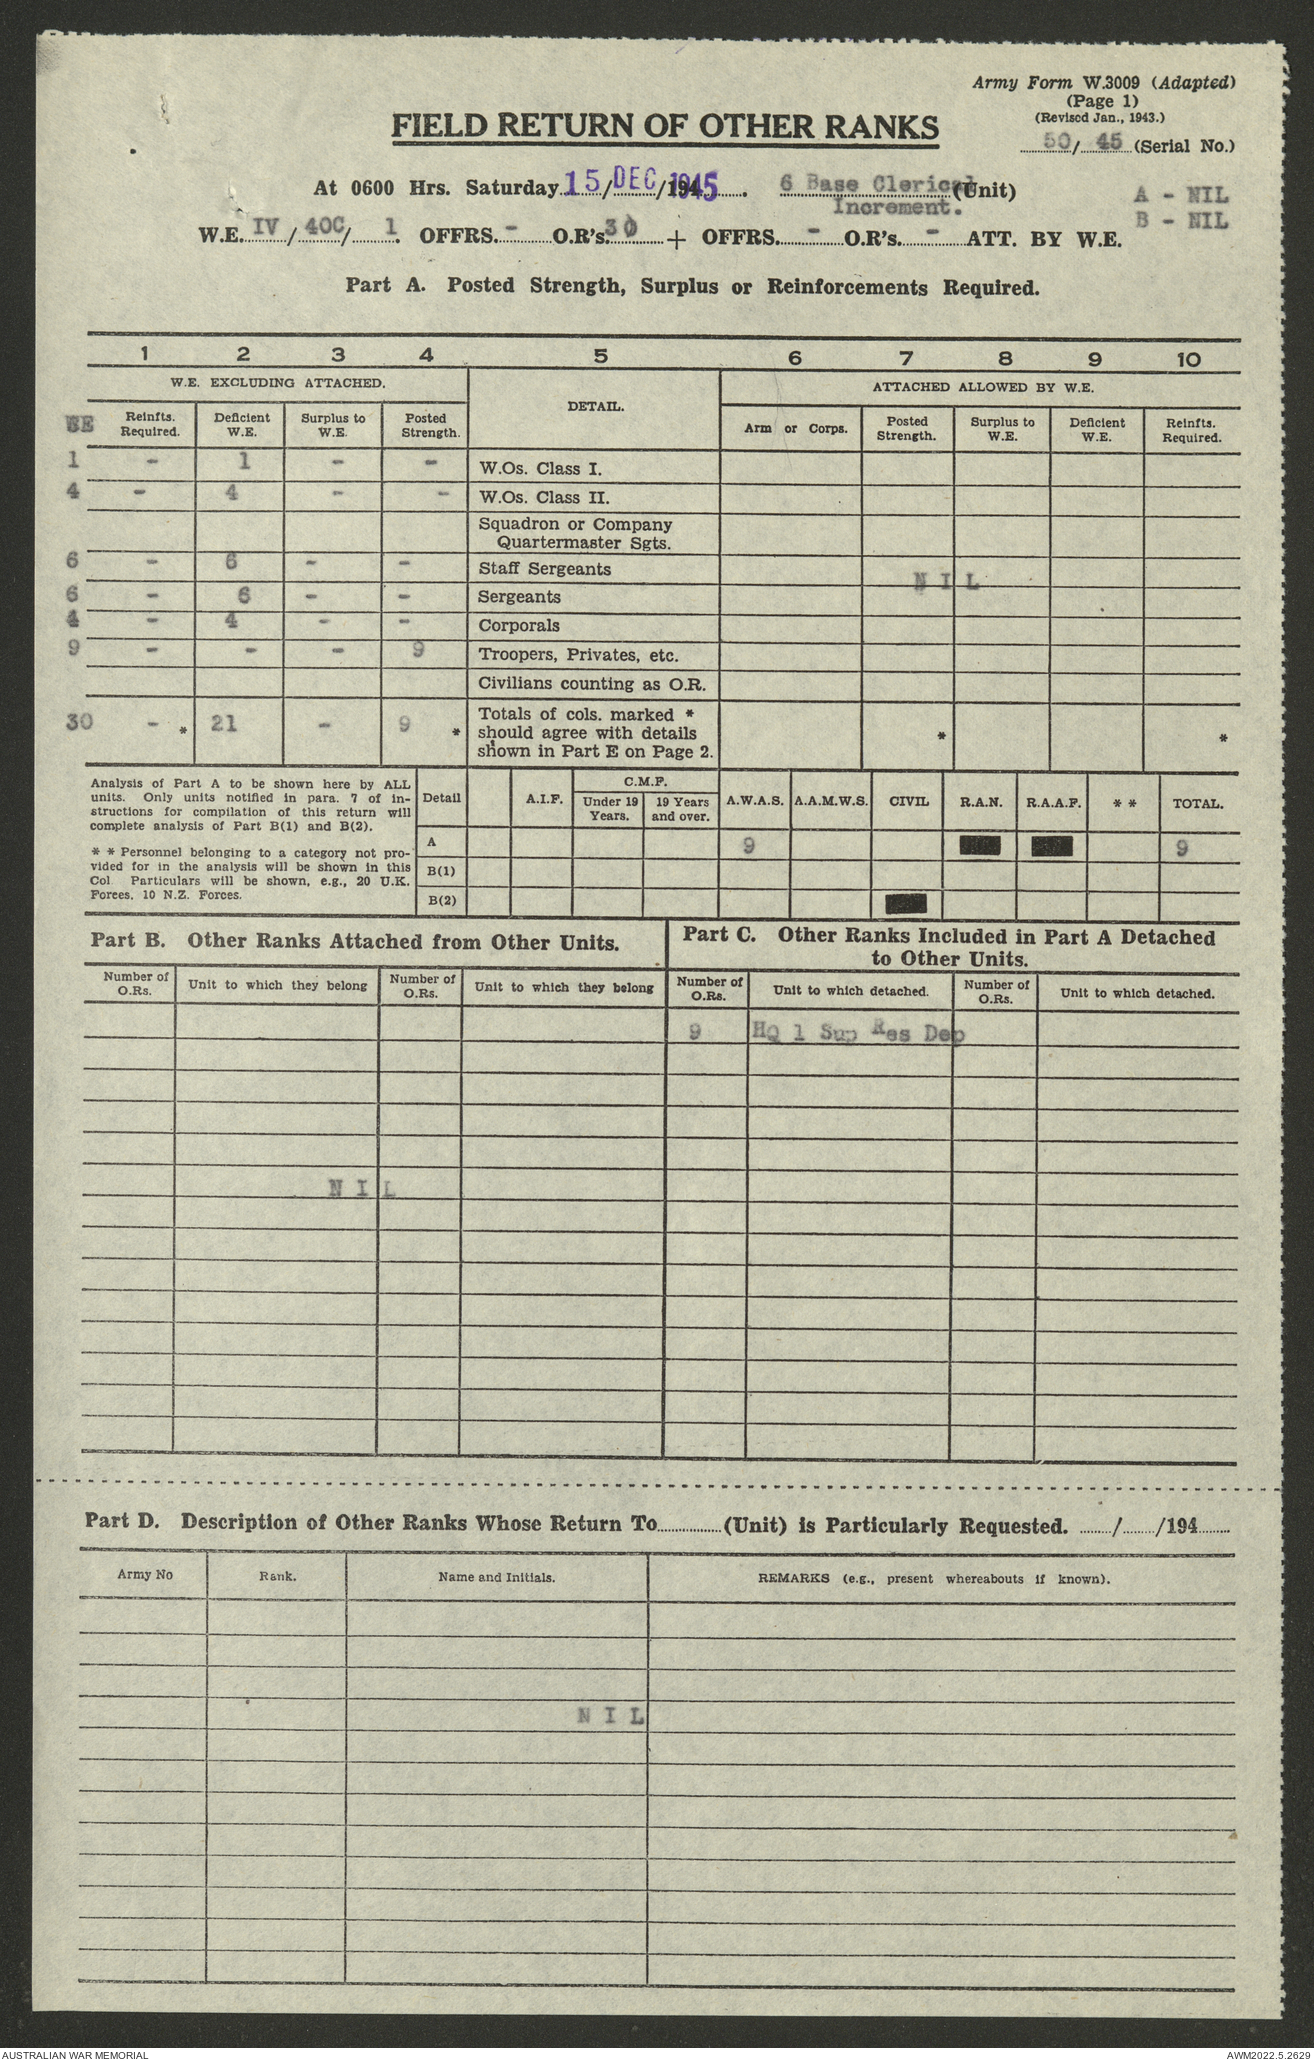 Army Form W.3009 (Adapted)
(Page 1)
(Revised Jan., 1943.)
50/ 45 (Serial No.)
FIELD RETURN OF OTHER RANKS
At 0600 Hrs. Saturday 15/DEC/1945. 6 Base Clerical (Unit)
Increment.
A - NIL
B - NIL
W.E. IV / 40C/ 1. OFFRS. - O.R's. 30 + OFFRS. - O.R's. - ATT. BY W.E.
Part A. Posted Strength, Surplus or Reinforcements Required.
1 2 3 4 5 6 7 8 9 10
W.E. EXCLUDING ATTACHED. DETAIL. ATTACHED ALLOWED BY W.E.
WE Reinfts. Required. Deficient W.E. Surplus to W.E. Posted Strength. Arm or Corps. Posted Strength. Surplus to W.E. Deficient W.E. Reinfts. Required.
1 - 1 - - W.Os. Class I.
4 - 4 - - W.Os. Class II.
Squadron or Company
Quartermaster Sgts.
6 - 6 - - Staff Sergeants
N I L
6 - 6 - - Sergeants
4 - 4 - - Corporals
9 - - - 9 Troopers, Privates, etc.
Civilians counting as O.R.
30 - * 21 - 9 * Totals of cols. marked *
should agree with details * *
shown in Part E on Page 2.
Analysis of Part A to be shown here by ALL
units. Only units notified in para. 7 of in-
structions for compilation of this return will
complete analysis of Part B(1) and B(2).
* * Personnel belonging to a category not pro-
vided for in the analysis will be shown in this
Col Particulars will be shown, e.g., 20 U.K.
Forces, 10 N.Z. Forces.
Detail A.I.F. C.M.F. Under 19 Years. 19 Years and over. A.W.A.S. A.A.M.W.S. CIVIL R.A.N. R.A.A.F. * * TOTAL.
A 9 9
B(1)
B(2)
Part B. Other Ranks Attached from Other Units.
Part C. Other Ranks Included in Part A Detached
to Other Units.
Number of O.Rs. Unit to which they belong Number of O.Rs. Unit to which they belong Number of O.Rs. Unit to which detached. Number of O.Rs. Unit to which detached.
9 HQ 1 Sup Res Dep
N I L
Part D. Description of Other Ranks Whose Return To (Unit) is Particularly Requested. / /194
Army No Rank. Name and Initials. REMARKS (e.g., present whereabouts if known).
N I L
AUSTRALIAN WAR MEMORIAL
AWM2022.5.2629